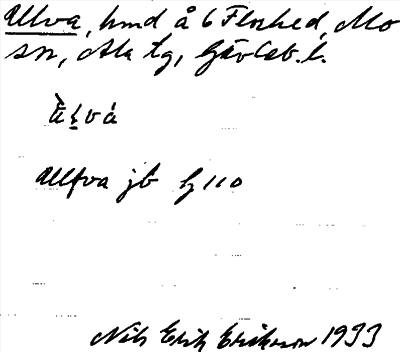 Ullva, hmd å 6 Florhed, Mo
sn, Ala tg, Gävleb. l.
Ullfva jb
Nils Erik Erikson 1933